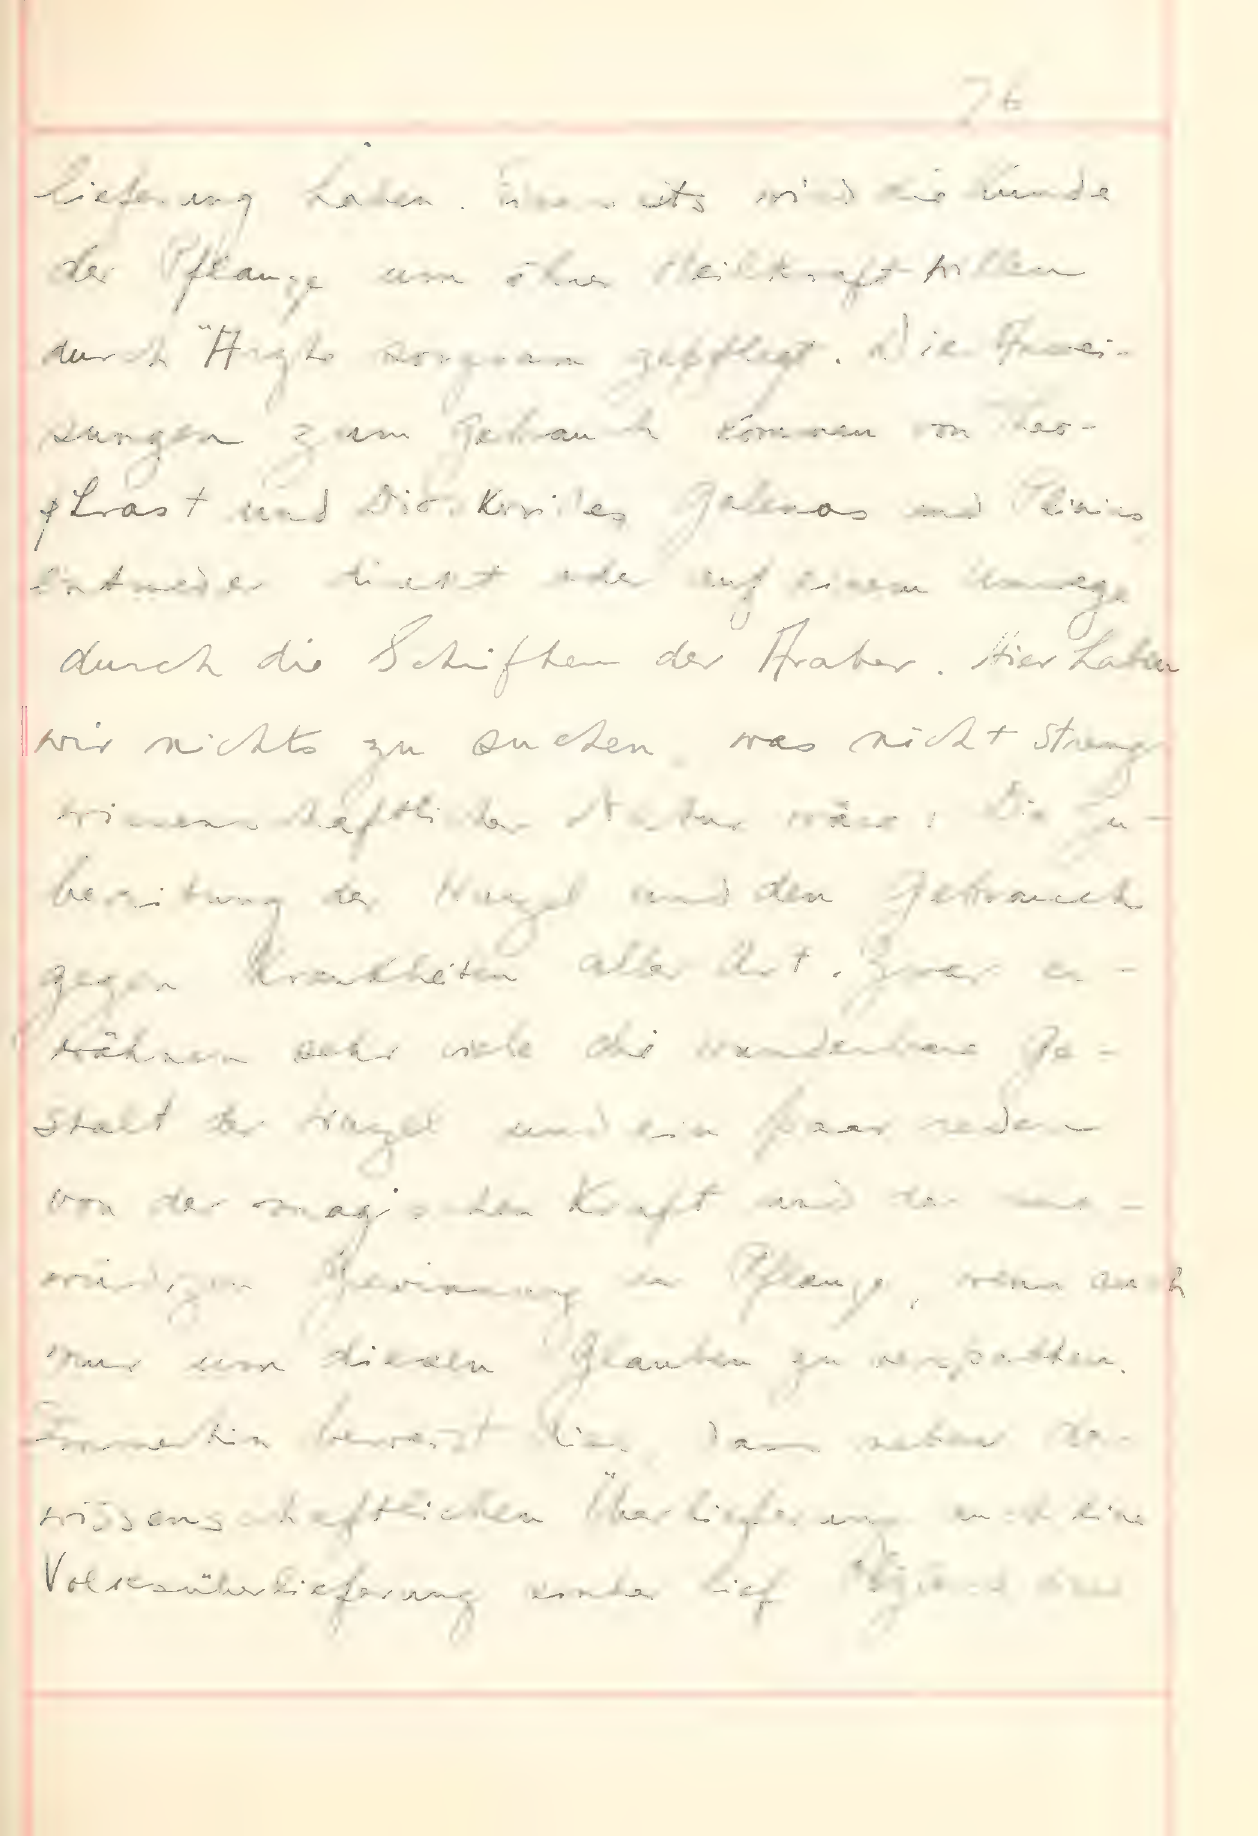 76
lieferung haben. Einerseits wird die Kunde
der Pflanze um ihrer Heilkraft willen
durch Ärzte sorgsam gepflegt. Die Anwei-
sungen zum Gebrauch kommen von Theo-
phrast und Dioskorides, Galenos und Plinius
entweder direkt oder auf einem Umwege
durch die Schriften der Araber. Hier haben
wir nichts zu suchen, was nicht streng
wissenschaftlicher Natur wäre: Die Zu-
bereitung der Wurzel und den Gebrauch
gegen Krankheiten aller Art. Zwar er-
wähnen sehr viele die wunderbare Ge-
stalt der Wurzel und ein paar reden
von der magischen Kraft und der
Gewinnung der Pflanze, wenn auch
nur um diesen Glauben zu verspotten.
Immerhin beweist dies, dass neben der
wissenschaftlichen Überlieferung auch eine
Volksüberlieferung einher lief